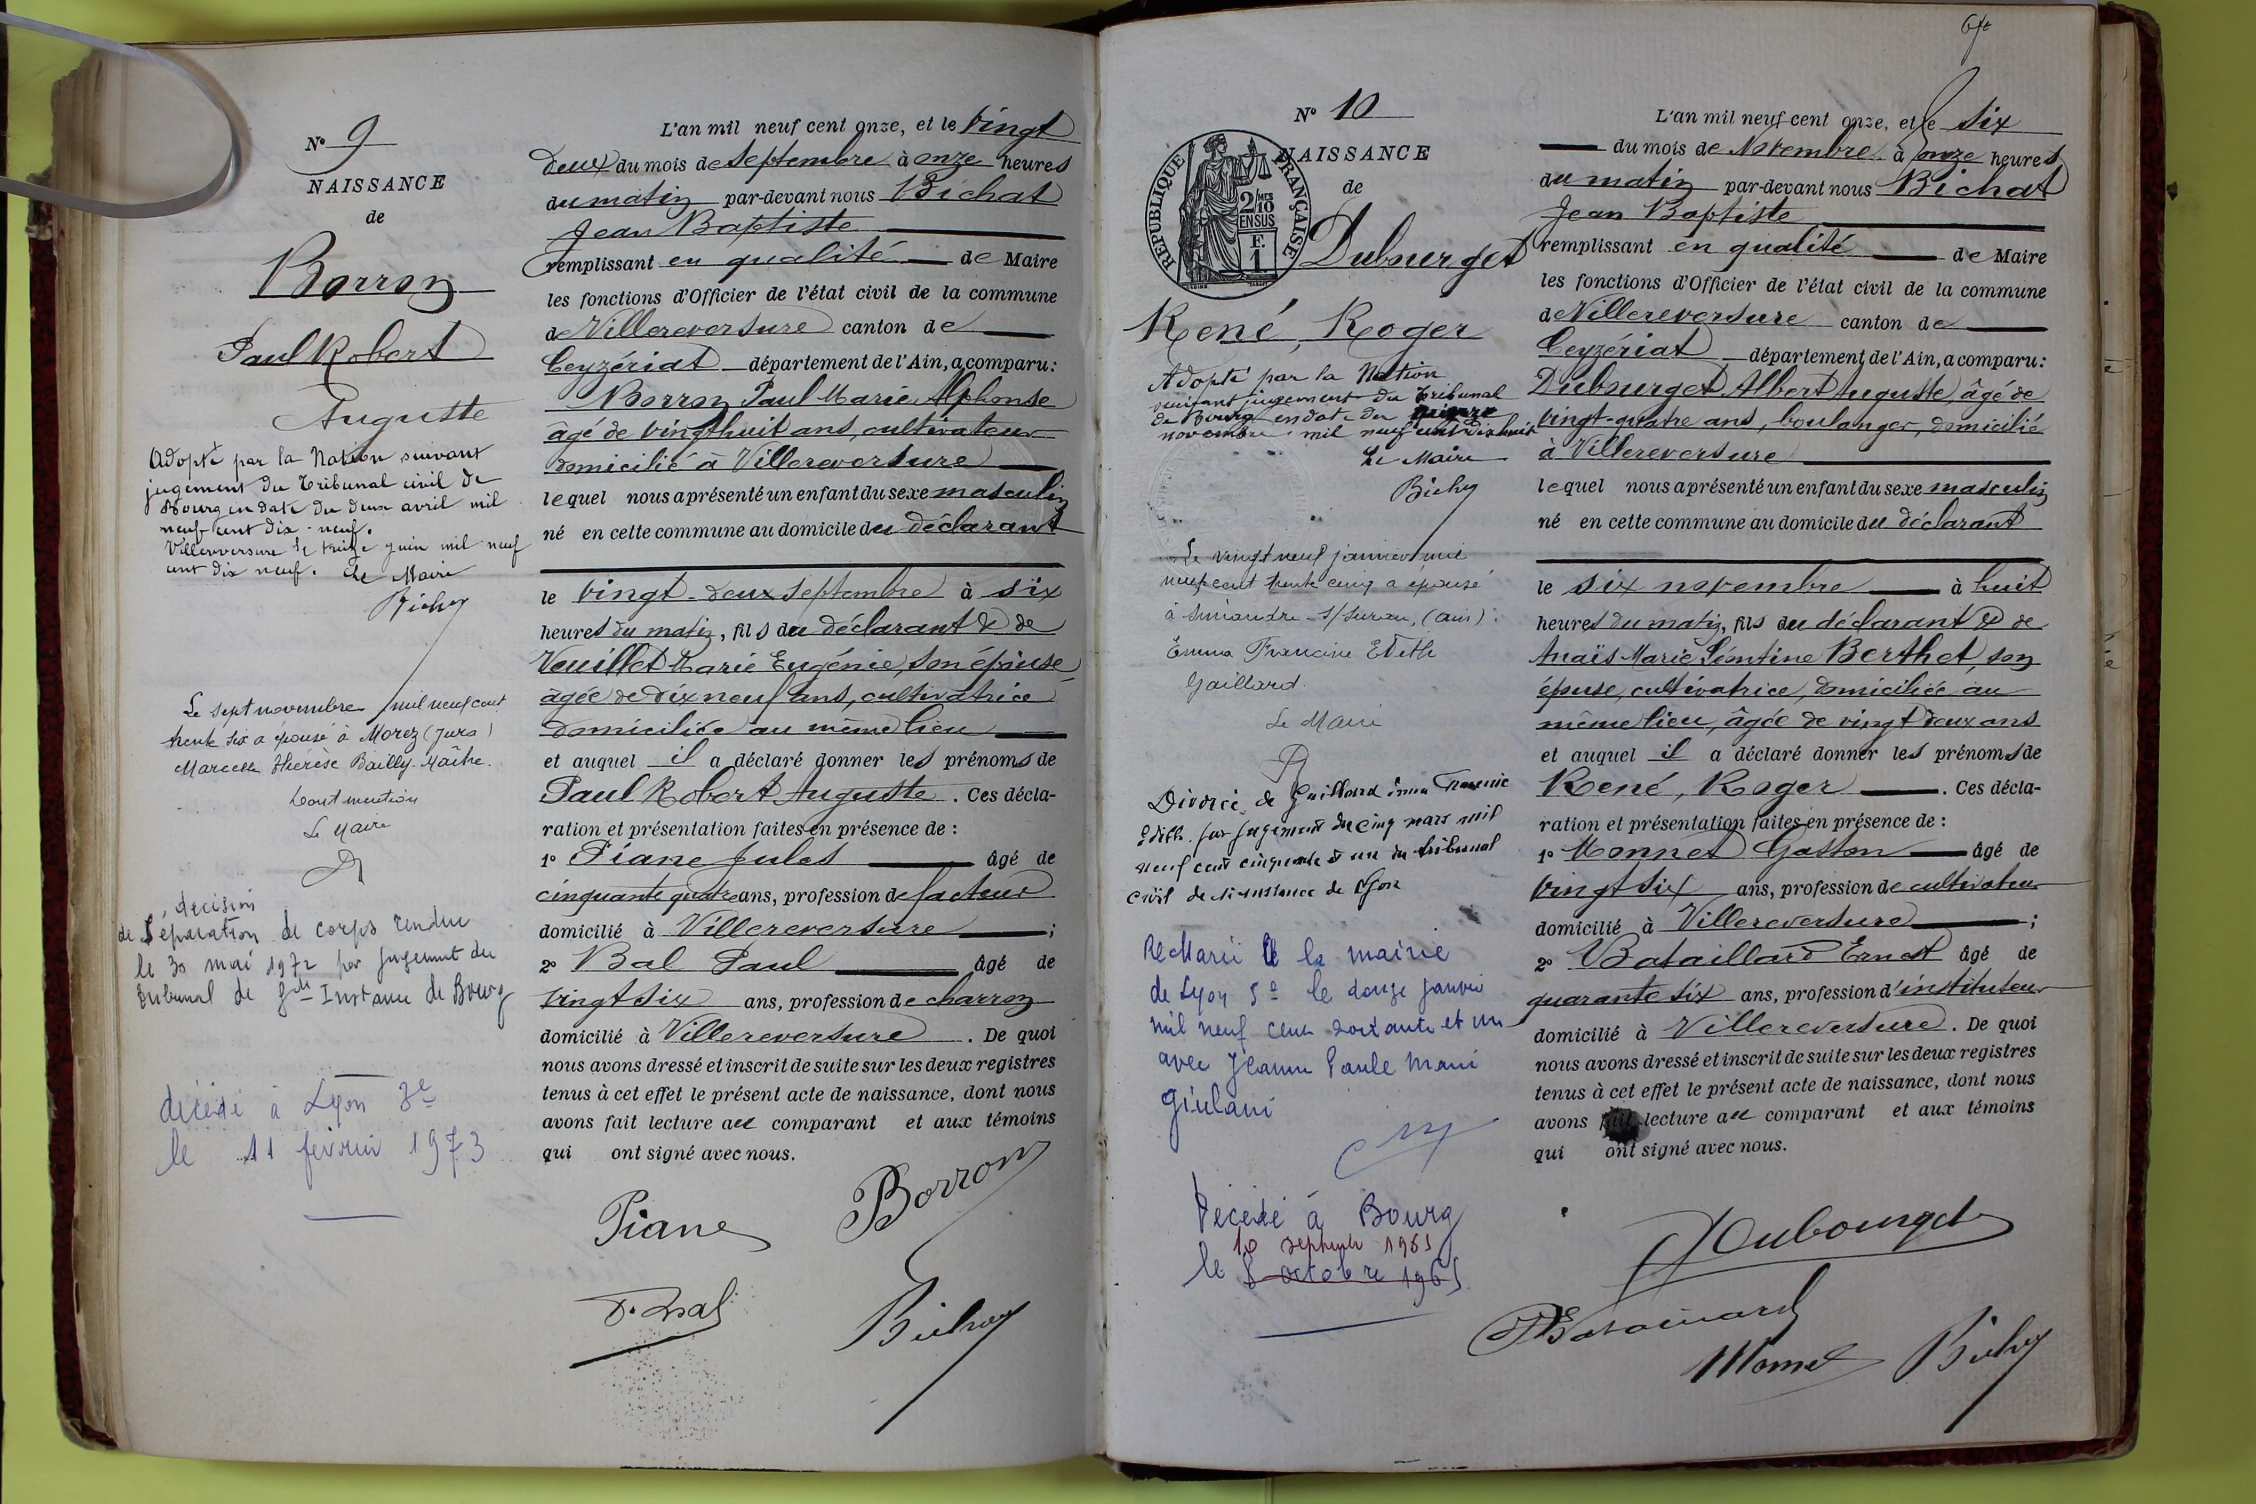 N° 9
NAISSANCE
de
Borron
Paul Robert
Auguste
Adopté par la Nation suivant
jugement du Tribunal civil de
Bourg en date du deux avril mil
neuf cent dix-neuf.
Villereversure le treize juin mil neuf
cent dix neuf. Le Maire
Bichat
Le sept novembre mil neuf cent
trente six a épousé à Morez (Jura)
Marcelle Thérèse Bailly-Maître.
Dont mention
Le Maire
décision
de Séparation de corps rendue
le 30 mai 1972 par jugement du
tribunal de Gde Instance de Bourg
décédé à Lyon 3e
le 11 février 1973
L'an mil neuf cent onze, et le vingt
deux du mois de septembre à onze heures
du matin par-devant nous Bichat
Jean Baptiste
remplissant en qualité de Maire
les fonctions d'Officier de l'état civil de la commune
de Villereversure canton de
Ceyzériat département de l'Ain, a comparu:
Borron Paul Marie Alphonse
âgé de vingt huit ans, cultivateur
domicilié à Villereversure
lequel nous a présenté un enfant du sexe masculin
né en cette commune au domicile du déclarant
le vingt-deux septembre à six
heures du matin, fils du déclarant & de
Veuillet Marie Eugénie, son épouse,
âgée de dix neuf ans, cultivatrice
domiciliée au même lieu
et auquel il a déclaré donner les prénoms de
Paul Robert Auguste. Ces décla-
ration et présentation faites en présence de :
1° Piane Jules âgé de
cinquante quatre ans, profession de facteur
domicilié à Villereversure ;
2° Bal Paul âgé de
vingt six ans, profession de charron
domicilié à Villereversure. De quoi
nous avons dressé et inscrit de suite sur les deux registres
tenus à cet effet le présent acte de naissance, dont nous
avons fait lecture au comparant et aux témoins
qui ont signé avec nous.
Piane Borron
P. Bal Bichat
N° 10
NAISSANCE
de
RÉPUBLIQUE FRANÇAISE
2/10 MES
EN SUS
F.
1
Dubourget
René, Roger
Adopté par la Nation
suivant jugement du Tribunal
de Bourg en date du quinze
novembre mil neuf cent dix huit
Le Maire
Bichat
Le vingt neuf janvier mil
neuf cent trente cinq a épousé
à Simandre-s/Suran, (Ain) :
Emma Francine Edith
Gaillard.
Le Maire
Divorcé de Gaillard Emma Francine
Edith par jugement du cinq mars mil
neuf cent cinquante et un du tribunal
civil de 1ère instance de Lyon
Remarié à la mairie
de Lyon 5e le douze janvier
mil neuf cent soixante et un
avec Jeanne Paule Marie
Giulani
Décédé à Bourg
10 septembre 1965
le 8 octobre 1965
L'an mil neuf cent onze, et le six
du mois de Novembre à onze heures
du matin par-devant nous Bichat
Jean Baptiste
remplissant en qualité de Maire
les fonctions d'Officier de l'état civil de la commune
de Villereversure canton de
Ceyzériat département de l'Ain, a comparu:
Dubourget Albert Auguste, âgé de
vingt-quatre ans, boulanger, domicilié
à Villereversure
lequel nous a présenté un enfant du sexe masculin
né en cette commune au domicile du déclarant
le six novembre à huit
heures du matin, fils du déclarant & de
Anaïs Marie Léontine Berthet, son
épouse, cultivatrice, domiciliée au
même lieu, âgée de vingt deux ans
et auquel il a déclaré donner les prénoms de
René, Roger. Ces décla-
ration et présentation faites en présence de :
1° Monnet Gaston âgé de
vingt six ans, profession de cultivateur
domicilié à Villereversure ;
2° Bataillard Ernest âgé de
quarante six ans, profession d'instituteur
domicilié à Villereversure. De quoi
nous avons dressé et inscrit de suite sur les deux registres
tenus à cet effet le présent acte de naissance, dont nous
avons fait lecture au comparant et aux témoins
qui ont signé avec nous.
Dubourget
Bataillard
Monnet Bichat